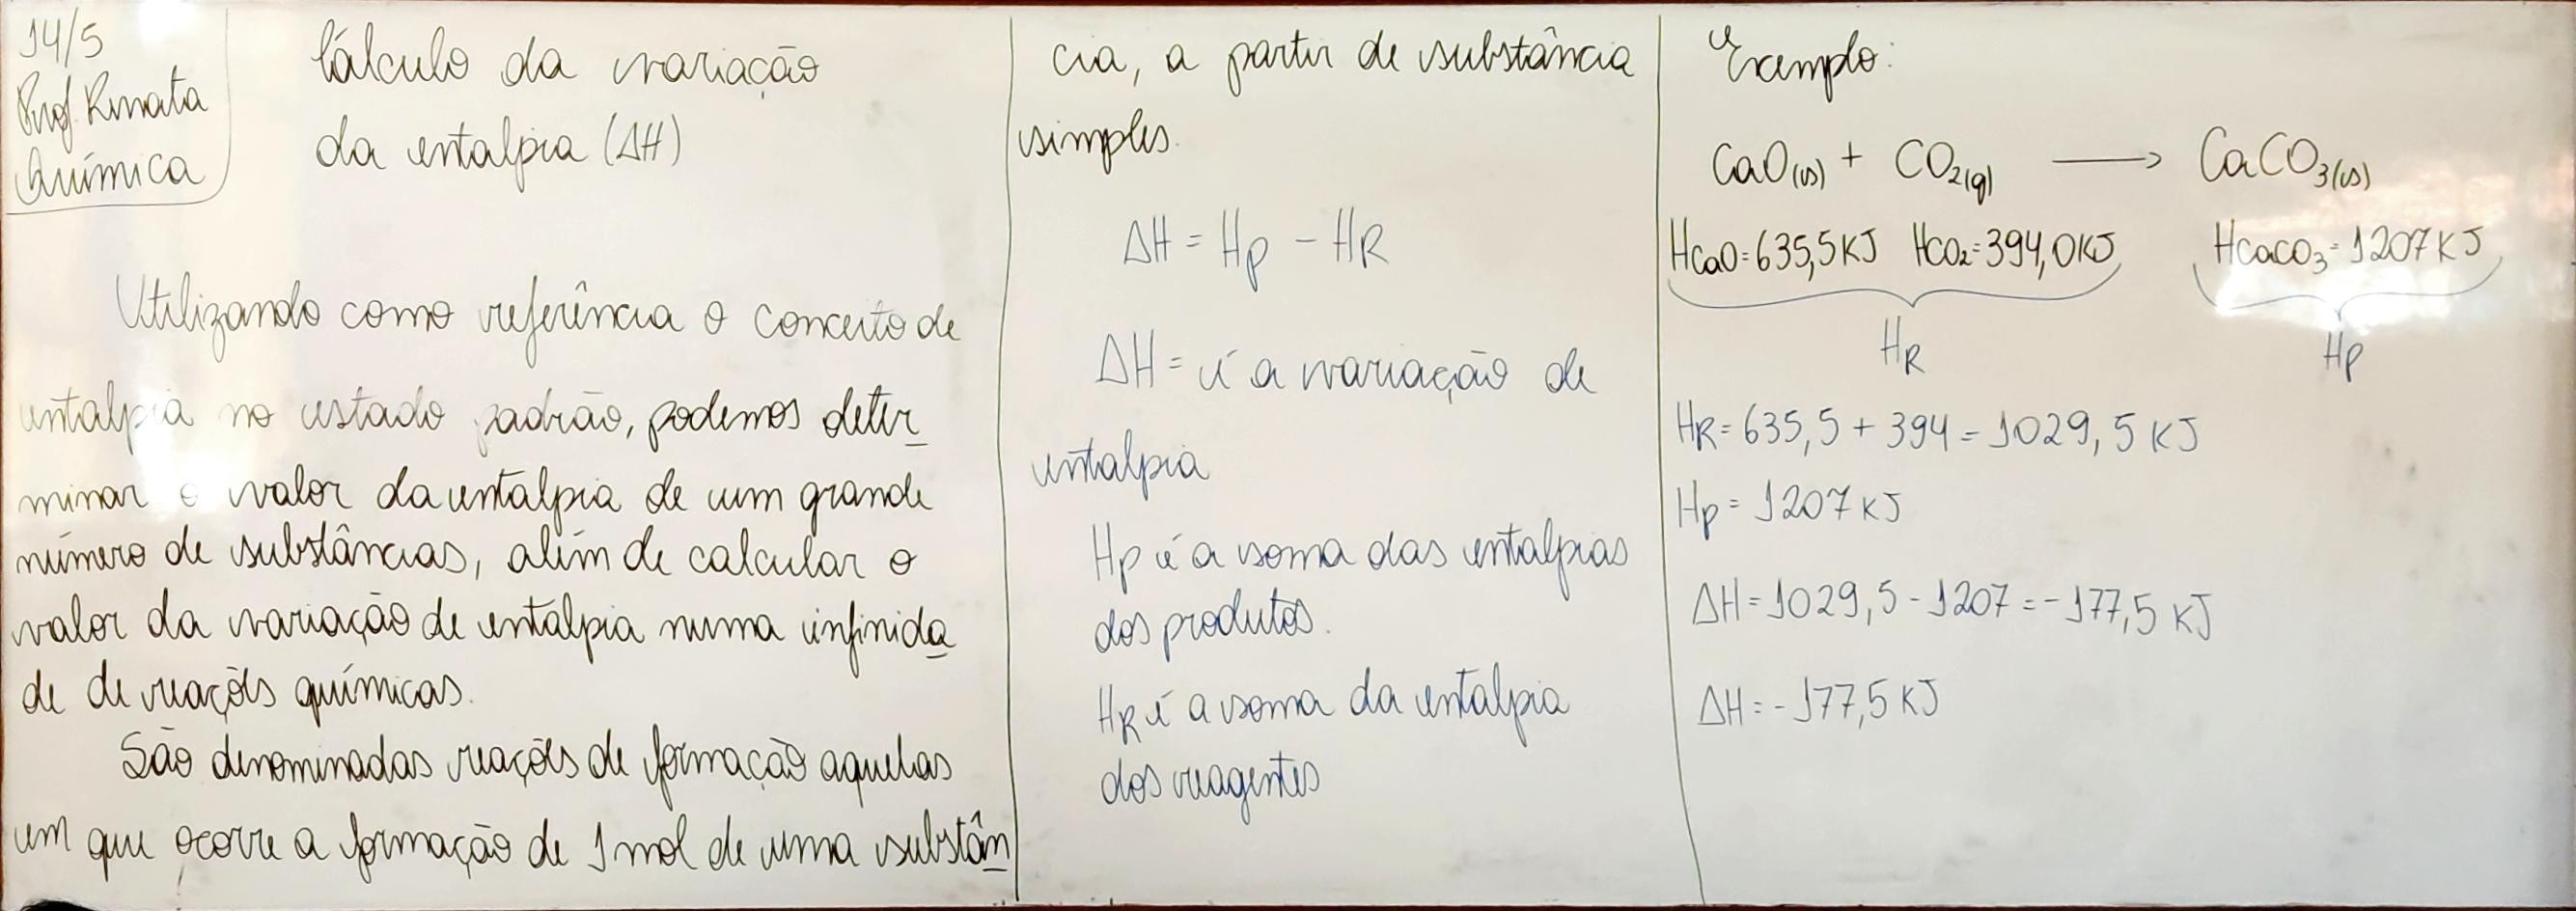 14/5
Prof. Renata
Química
Cálculo da variação
da entalpia (ΔH)
Utilizando como referência o conceito de
entalpia no estado padrão, podemos deter
minar o valor da entalpia de um grande
número de substâncias, além de calcular o
valor da variação de entalpia numa infinida
de de reações químicas.
São denominadas reações de formação aquelas
em que ocorre a formação de 1 mol de uma substân
cia, a partir de substância
simples.
ΔH = Hp - HR
ΔH = é a variação de
entalpia
Hp é a soma das entalpias
dos produtos.
HR é a soma da entalpia
dos reagentes
Exemplo:
CaO(s) + CO₂(g) ⟶ CaCO₃(s)
HCaO = 635,5 KJ HCO₂ = 394,0 KJ HCaCO₃ = 1207 KJ
HR Hp
HR = 635,5 + 394 = 1029,5 KJ
Hp = 1207 KJ
ΔH = 1029,5 - 1207 = -177,5 KJ
ΔH = -177,5 KJ